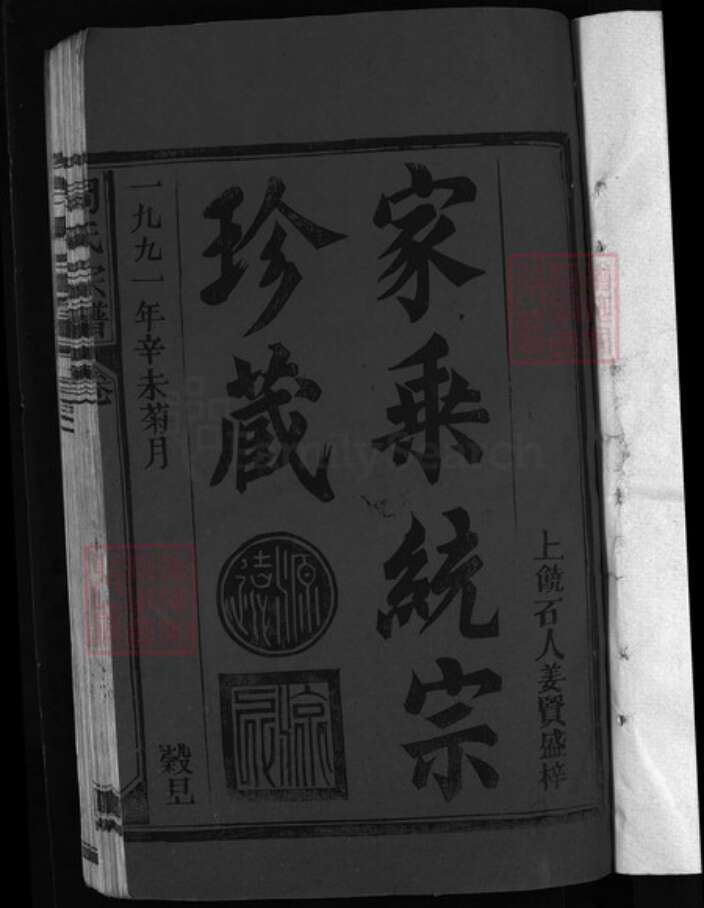 上饒石人姜賢盛梓
家乗統宗
珍藏
一九九一年辛未菊月
穀旦
氏宗譜